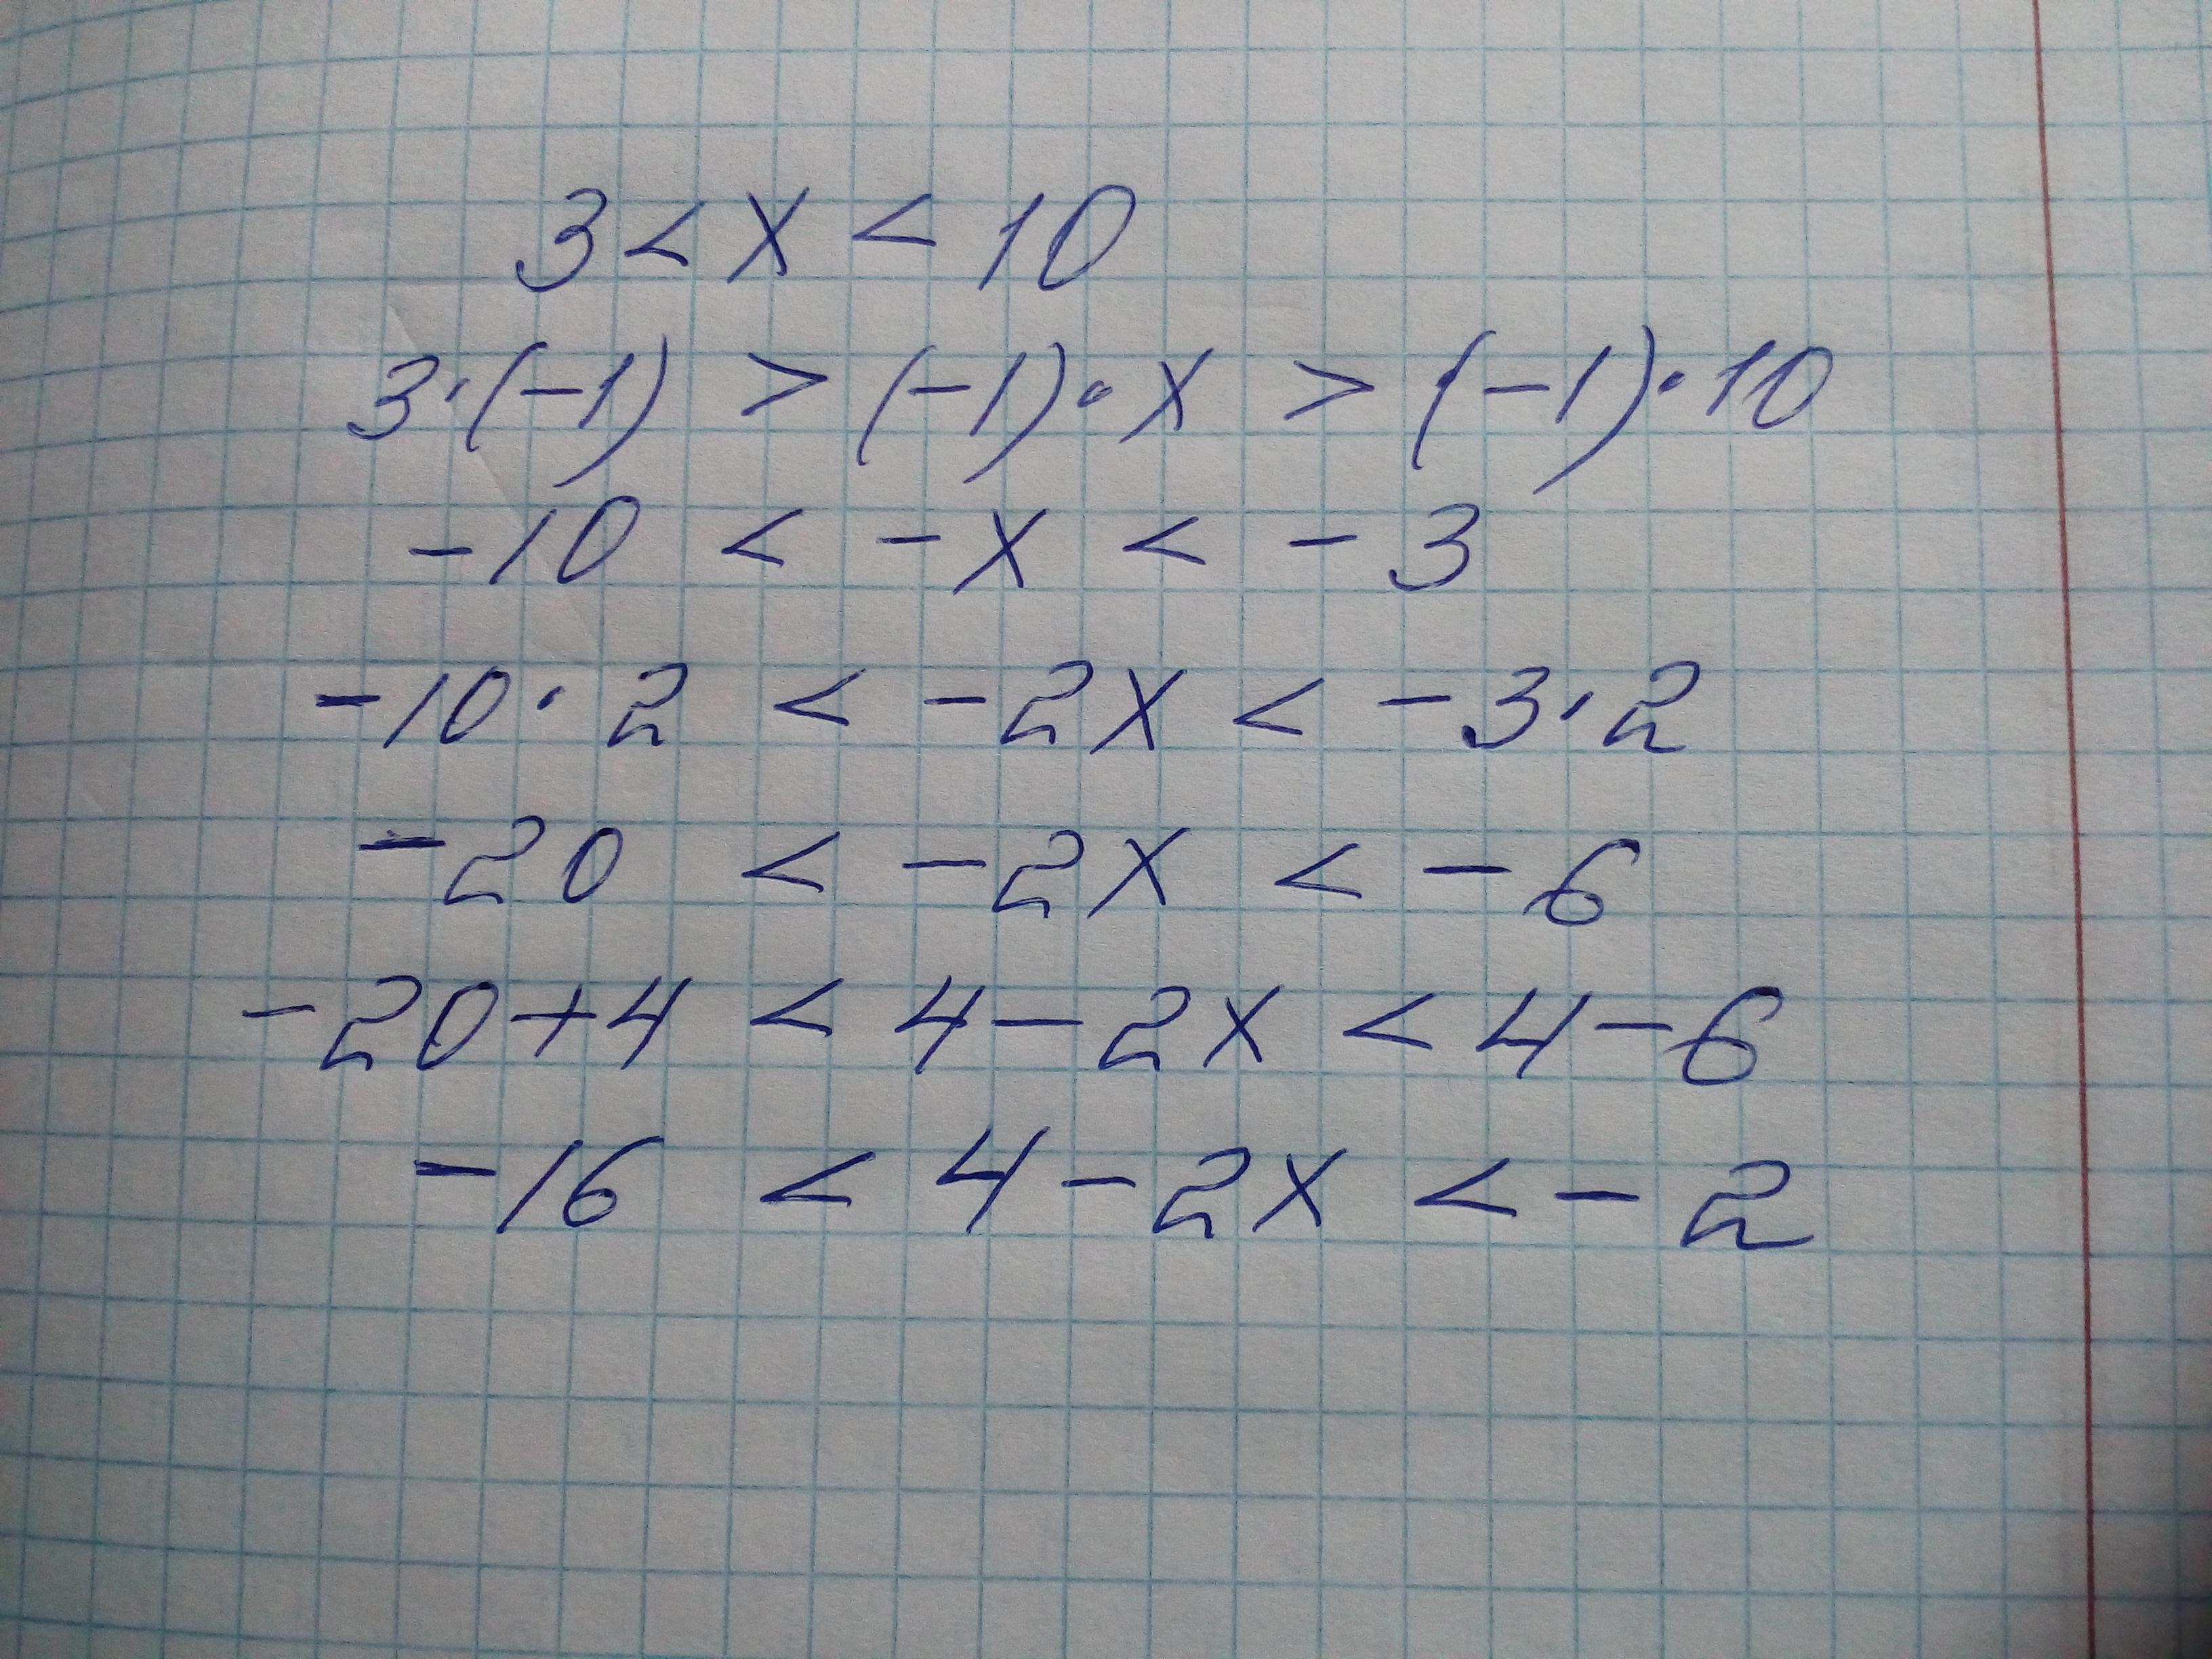 3 < x < 10
3·(-1) > (-1)·x > (-1)·10
-10 < -x < -3
-10·2 < -2x < -3·2
-20 < -2x < -6
-20+4 < 4-2x < 4-6
-16 < 4-2x < -2